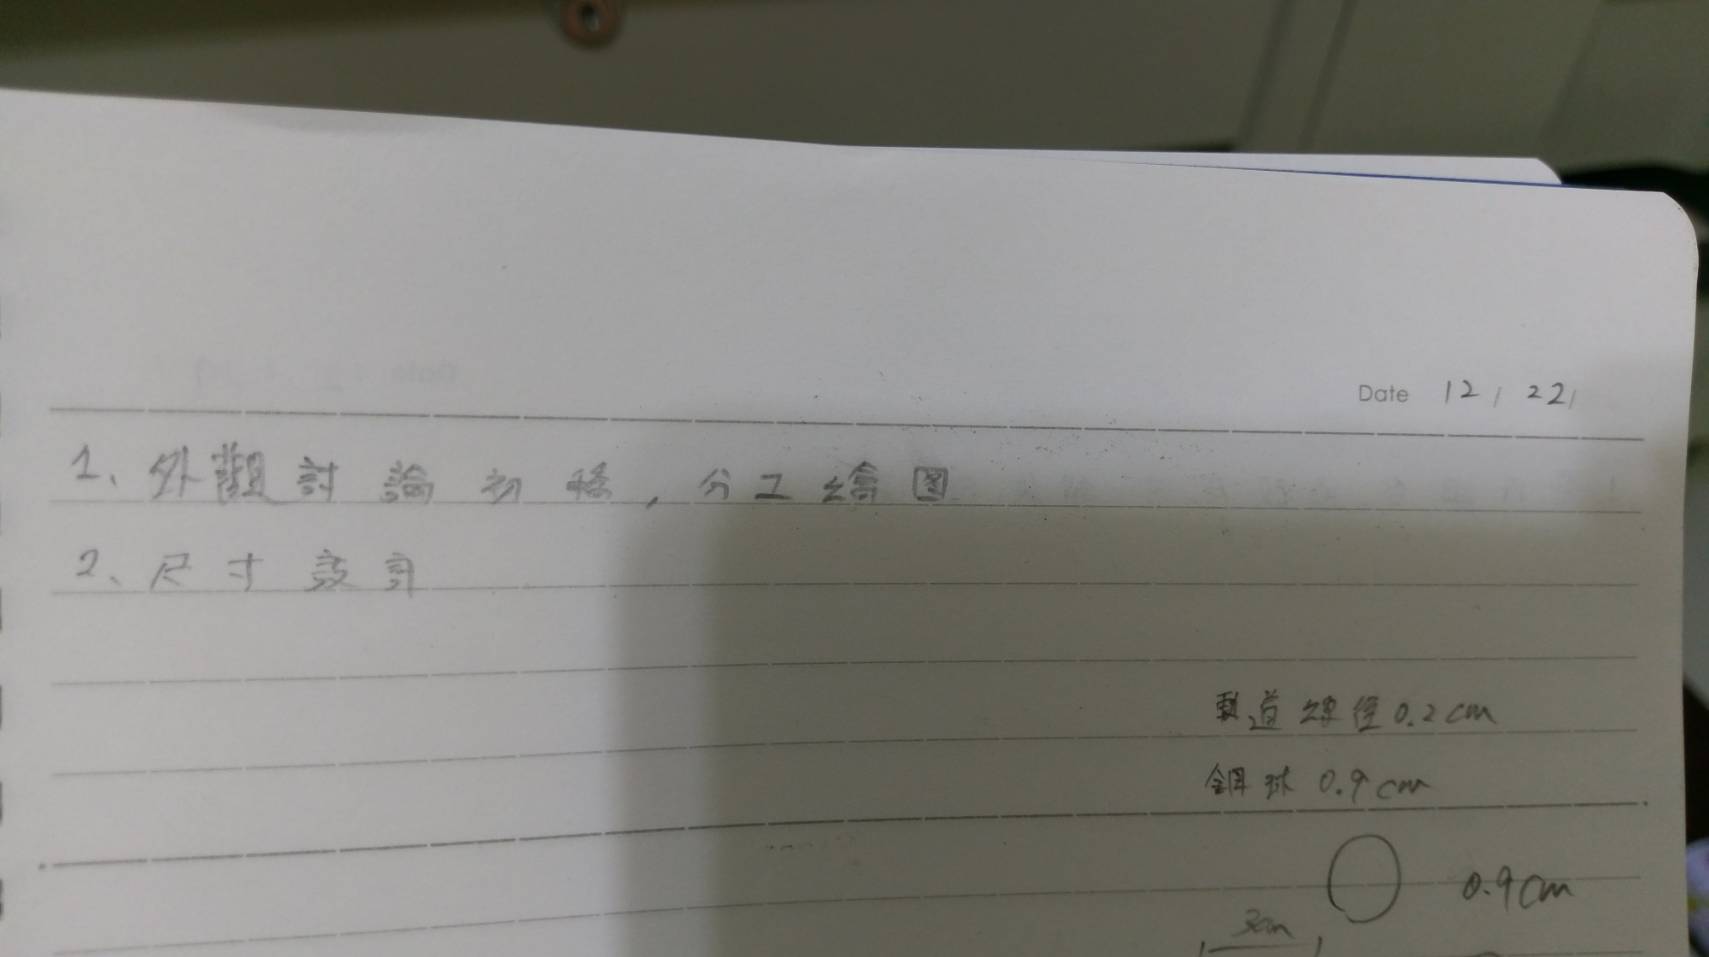 Date 12 / 22 /
1、外觀討論初稿，分工繪圖
2、尺寸設計
軌道線徑 0.2cm
鋼球 0.9cm
0.9cm
3cm